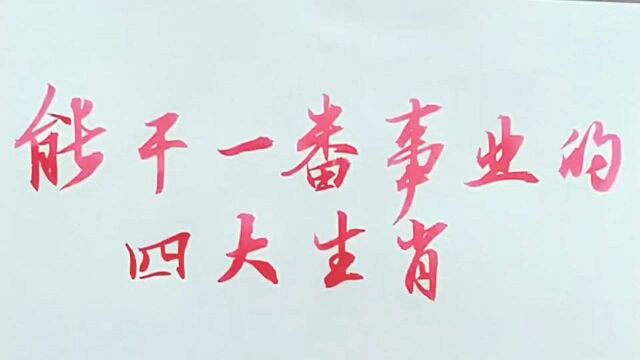 能干一番事业的
四大生肖